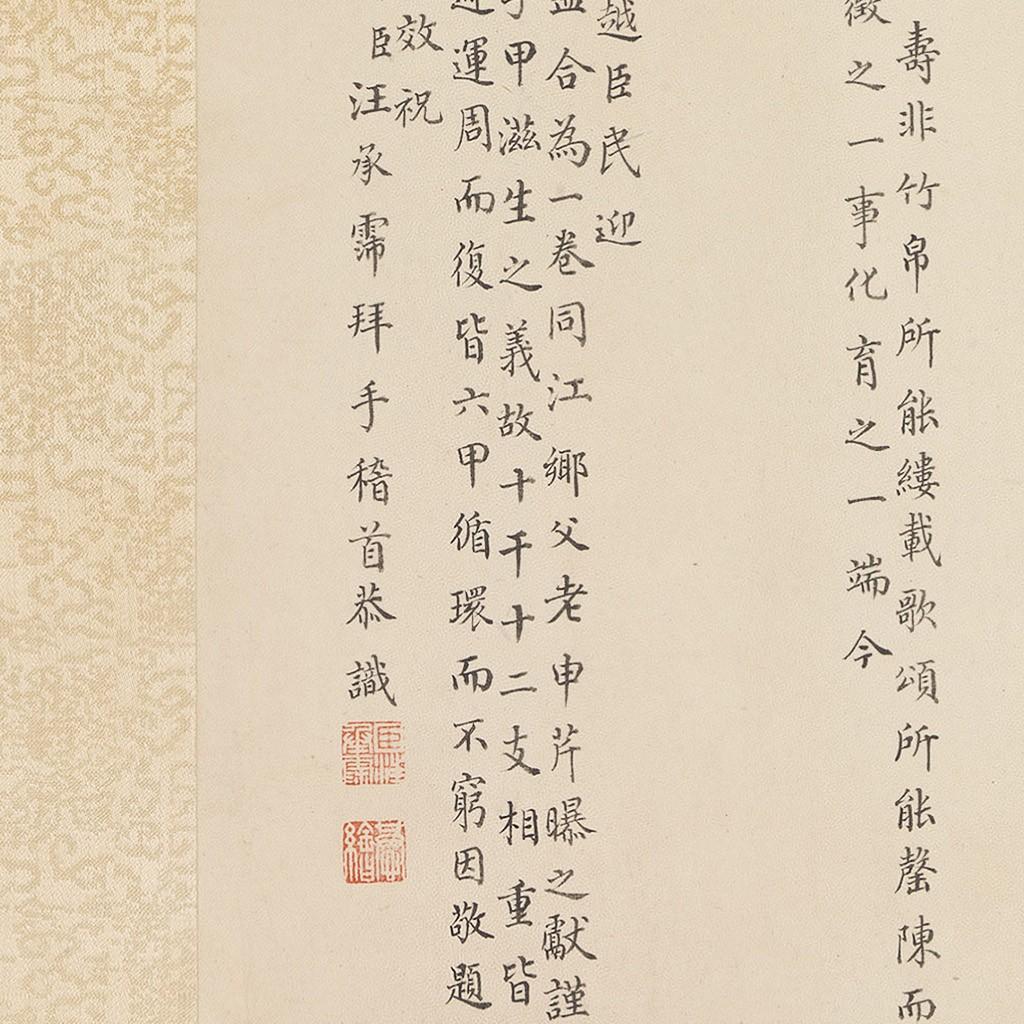 壽非竹帛所能縷載歌頌所能罄陳而
徵之一事化育之一端今
越臣民迎
合為一卷同江鄉父老申芹曝之獻謹
甲滋生之義故十干十二支相重皆
運周而復皆六甲循環而不窮因敬題
效祝
臣汪承霈拜手稽首恭識